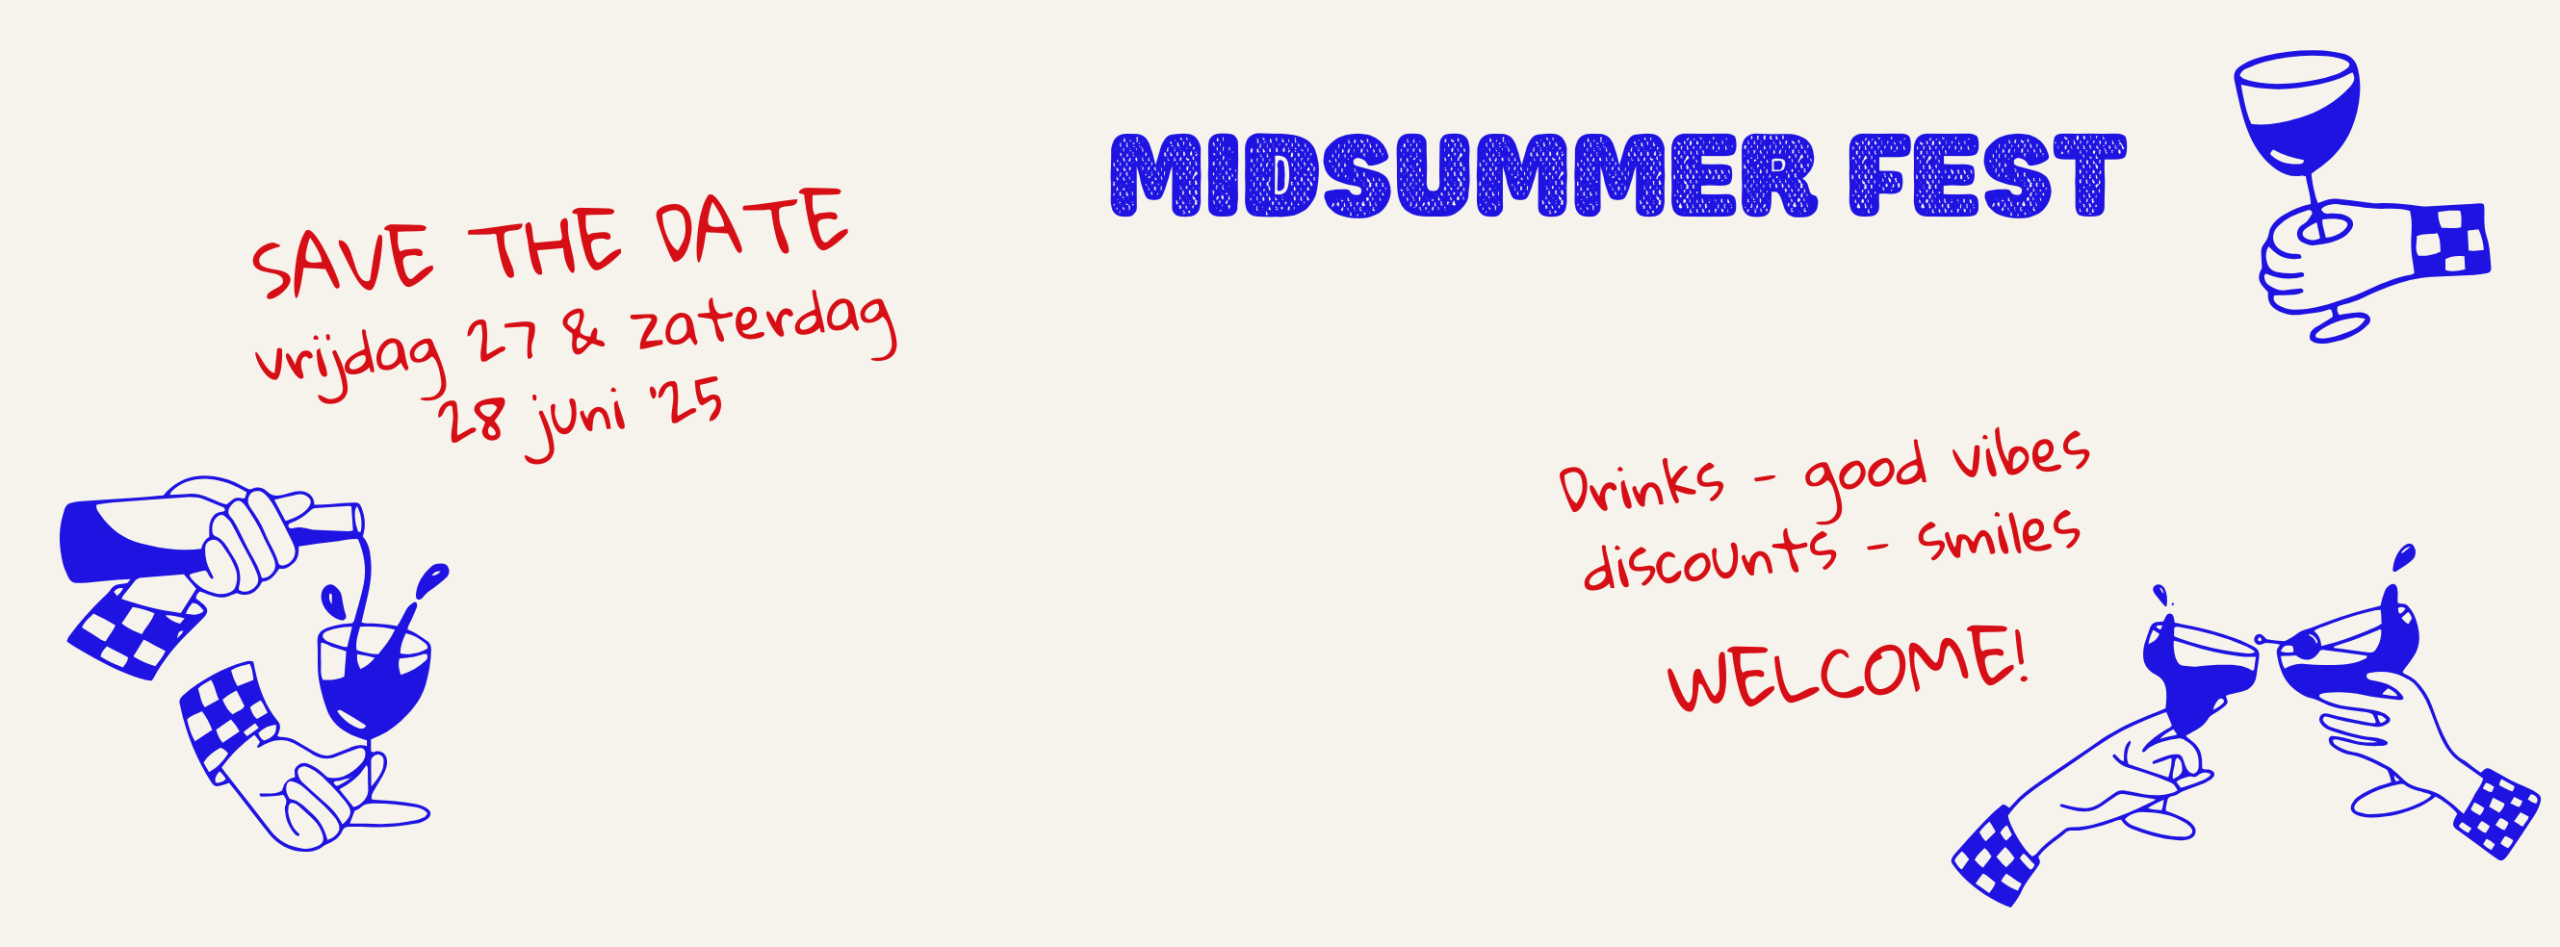 MIDSUMMER FEST
SAVE THE DATE
vrijdag 27 & zaterdag
28 juni '25
Drinks - good vibes
discounts - smiles
WELCOME!